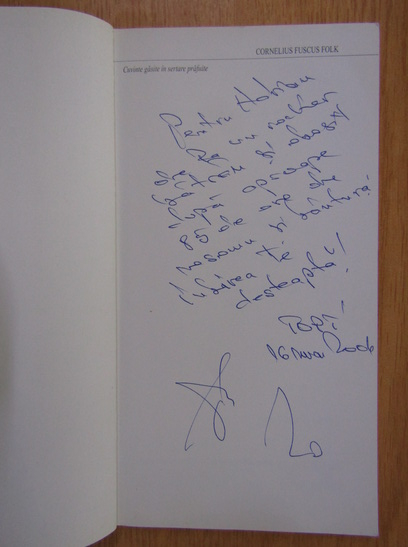 CORNELIUS FUSCUS FOLK
Cuvinte găsite în sertare prăfuite
Pentru Adrian
Pe un rocker
bătrân și obosit
după aproape
85 de ore de
nesomn și băutură!
Iubirea te
deșteaptă!
16 mai 2006